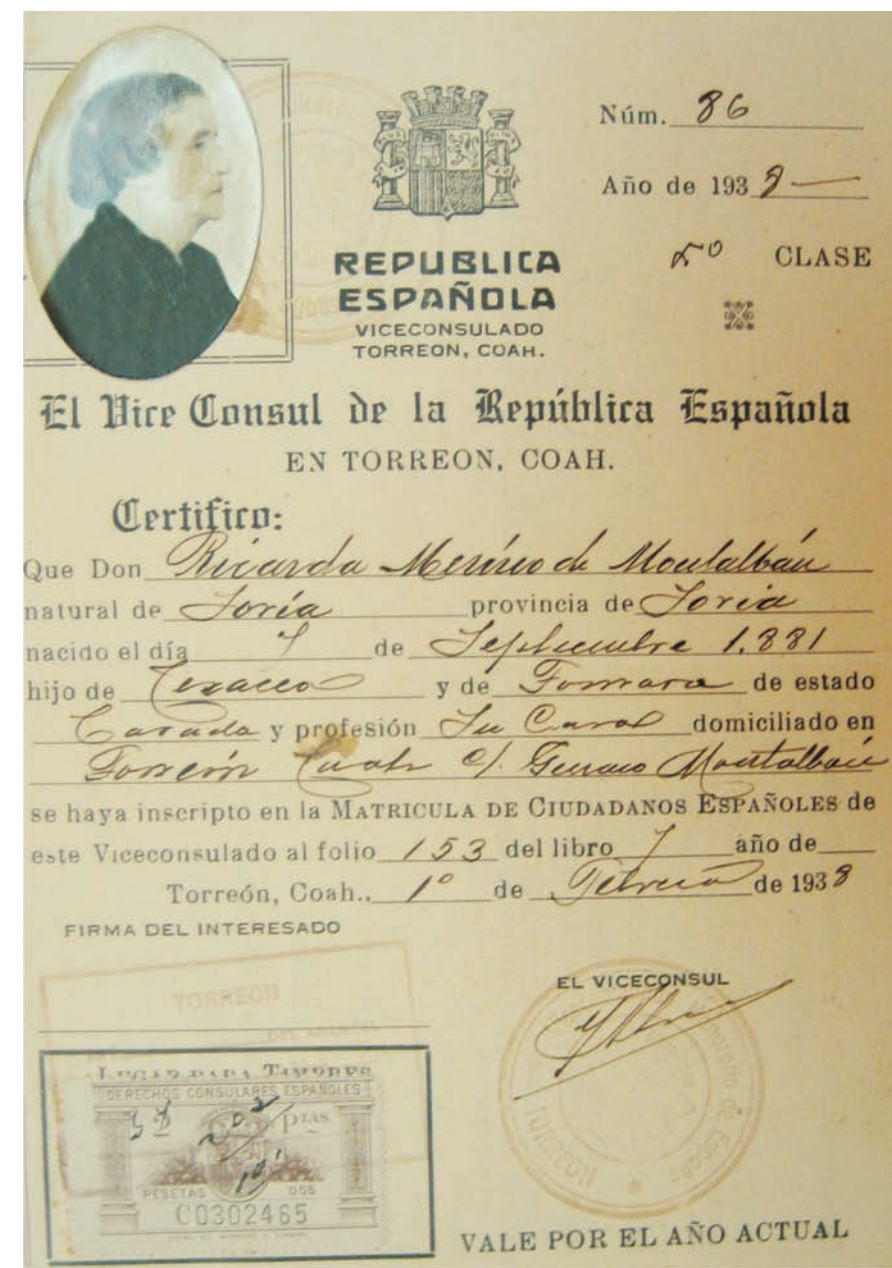 Núm. 86
Año de 1938
CLASE
REPUBLICA
ESPAÑOLA
VICECONSULADO
TORREON, COAH.
El Vice Consul de la República Española
EN TORREON, COAH.
Certifico:
Que Don Ricarda Merino de Montalbán
natural de Soria provincia de Soria
nacido el día 7 de Septiembre 1.881
hijo de y de de estado
Casada y profesión Su Casa domiciliado en
Torreón Coah c/. Genaro Montalbán
se haya inscripto en la MATRICULA DE CIUDADANOS ESPAÑOLES de
este Viceconsulado al folio 153 del libro año de
Torreón, Coah.. 1º de Febrero de 1938
FIRMA DEL INTERESADO
TORREON
EL VICECONSUL
LUGAR PARA TIMBRES
DERECHOS CONSULARES ESPAÑOLES
PTAS
PESETAS DOS
C0302465
TORREON
VALE POR EL AÑO ACTUAL